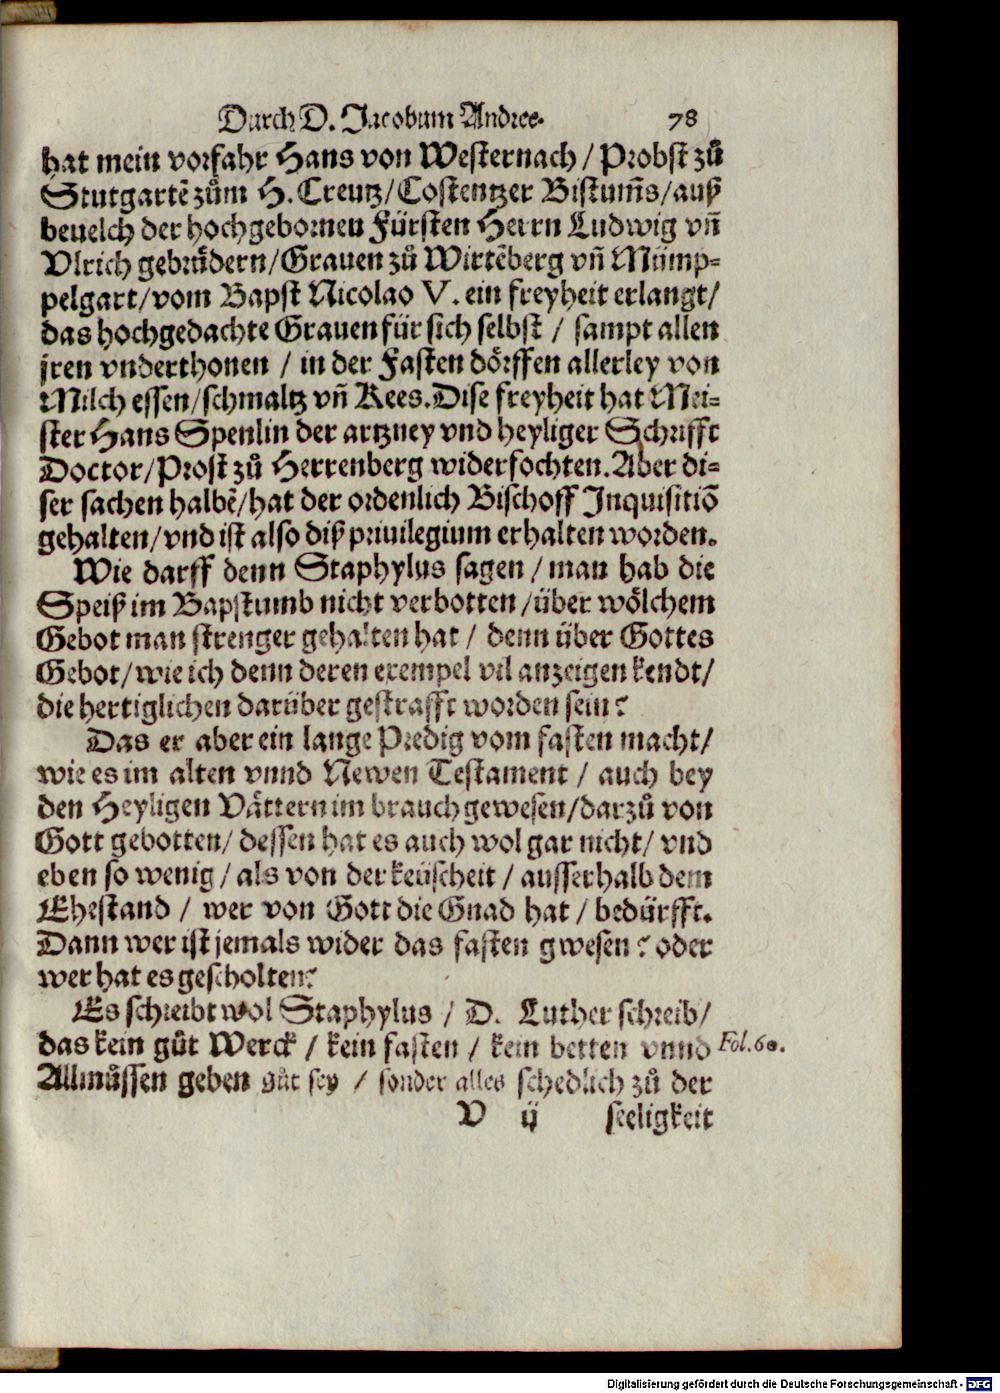 Durch D. Jacobum Andree. 78
hat mein vorfahr Hans von Westernach / Probst zů
Stutgartẽ zům H. Creutz/Costentzer Bistum̃s/auß
beuelch der hochgebornen Fürsten Herrn Ludwig vñ
Vlrich gebrůdern/Grauen zů Wirtẽberg vñ Mümp-
pelgart/vom Bapst Nicolao V. ein freyheit erlangt/
das hochgedachte Grauen für sich selbst / sampt allen
jren vnderthonen / in der Fasten dörffen allerley von
Milch essen/schmaltz vñ Kees. Dise freyheit hat Mei-
ster Hans Spenlin der artzney vnd heyliger Schrifft
Doctor/Prost zů Herrenberg widerfochten. Aber di-
ser sachen halbẽ/hat der ordenlich Bischoff Inquisitiõ
gehalten/vnd ist also diß priuilegium erhalten worden.
Wie darff denn Staphylus sagen / man hab die
Speiß im Bapstumb nicht verbotten /über wölchem
Gebot man strenger gehalten hat / denn über Gottes
Gebot/wie ich denn deren exempel vil anzeigen kendt/
die hertiglichen darüber gestrafft worden sein?
Das er aber ein lange Predig vom fasten macht/
wie es im alten vnnd Newen Testament / auch bey
den Heyligen Vättern im brauch gewesen/darzů von
Gott gebotten/ dessen hat es auch wol gar nicht/ vnd
eben so wenig / als von der keüscheit / ausserhalb dem
Ehestand / wer von Gott die Gnad hat / bedürfft.
Dann wer ist jemals wider das fasten gwesen? oder
wer hat es gescholten?
Es schreibt wol Staphylus / D. Luther schreib/
das kein gůt Werck / kein fasten / kein betten vnnd Fol.60.
Allmůssen geben gůt sey / sonder alles schedlich zů der
V ij seeligkeit
Digitalisierung gefördert durch die Deutsche Forschungsgemeinschaft - DFG